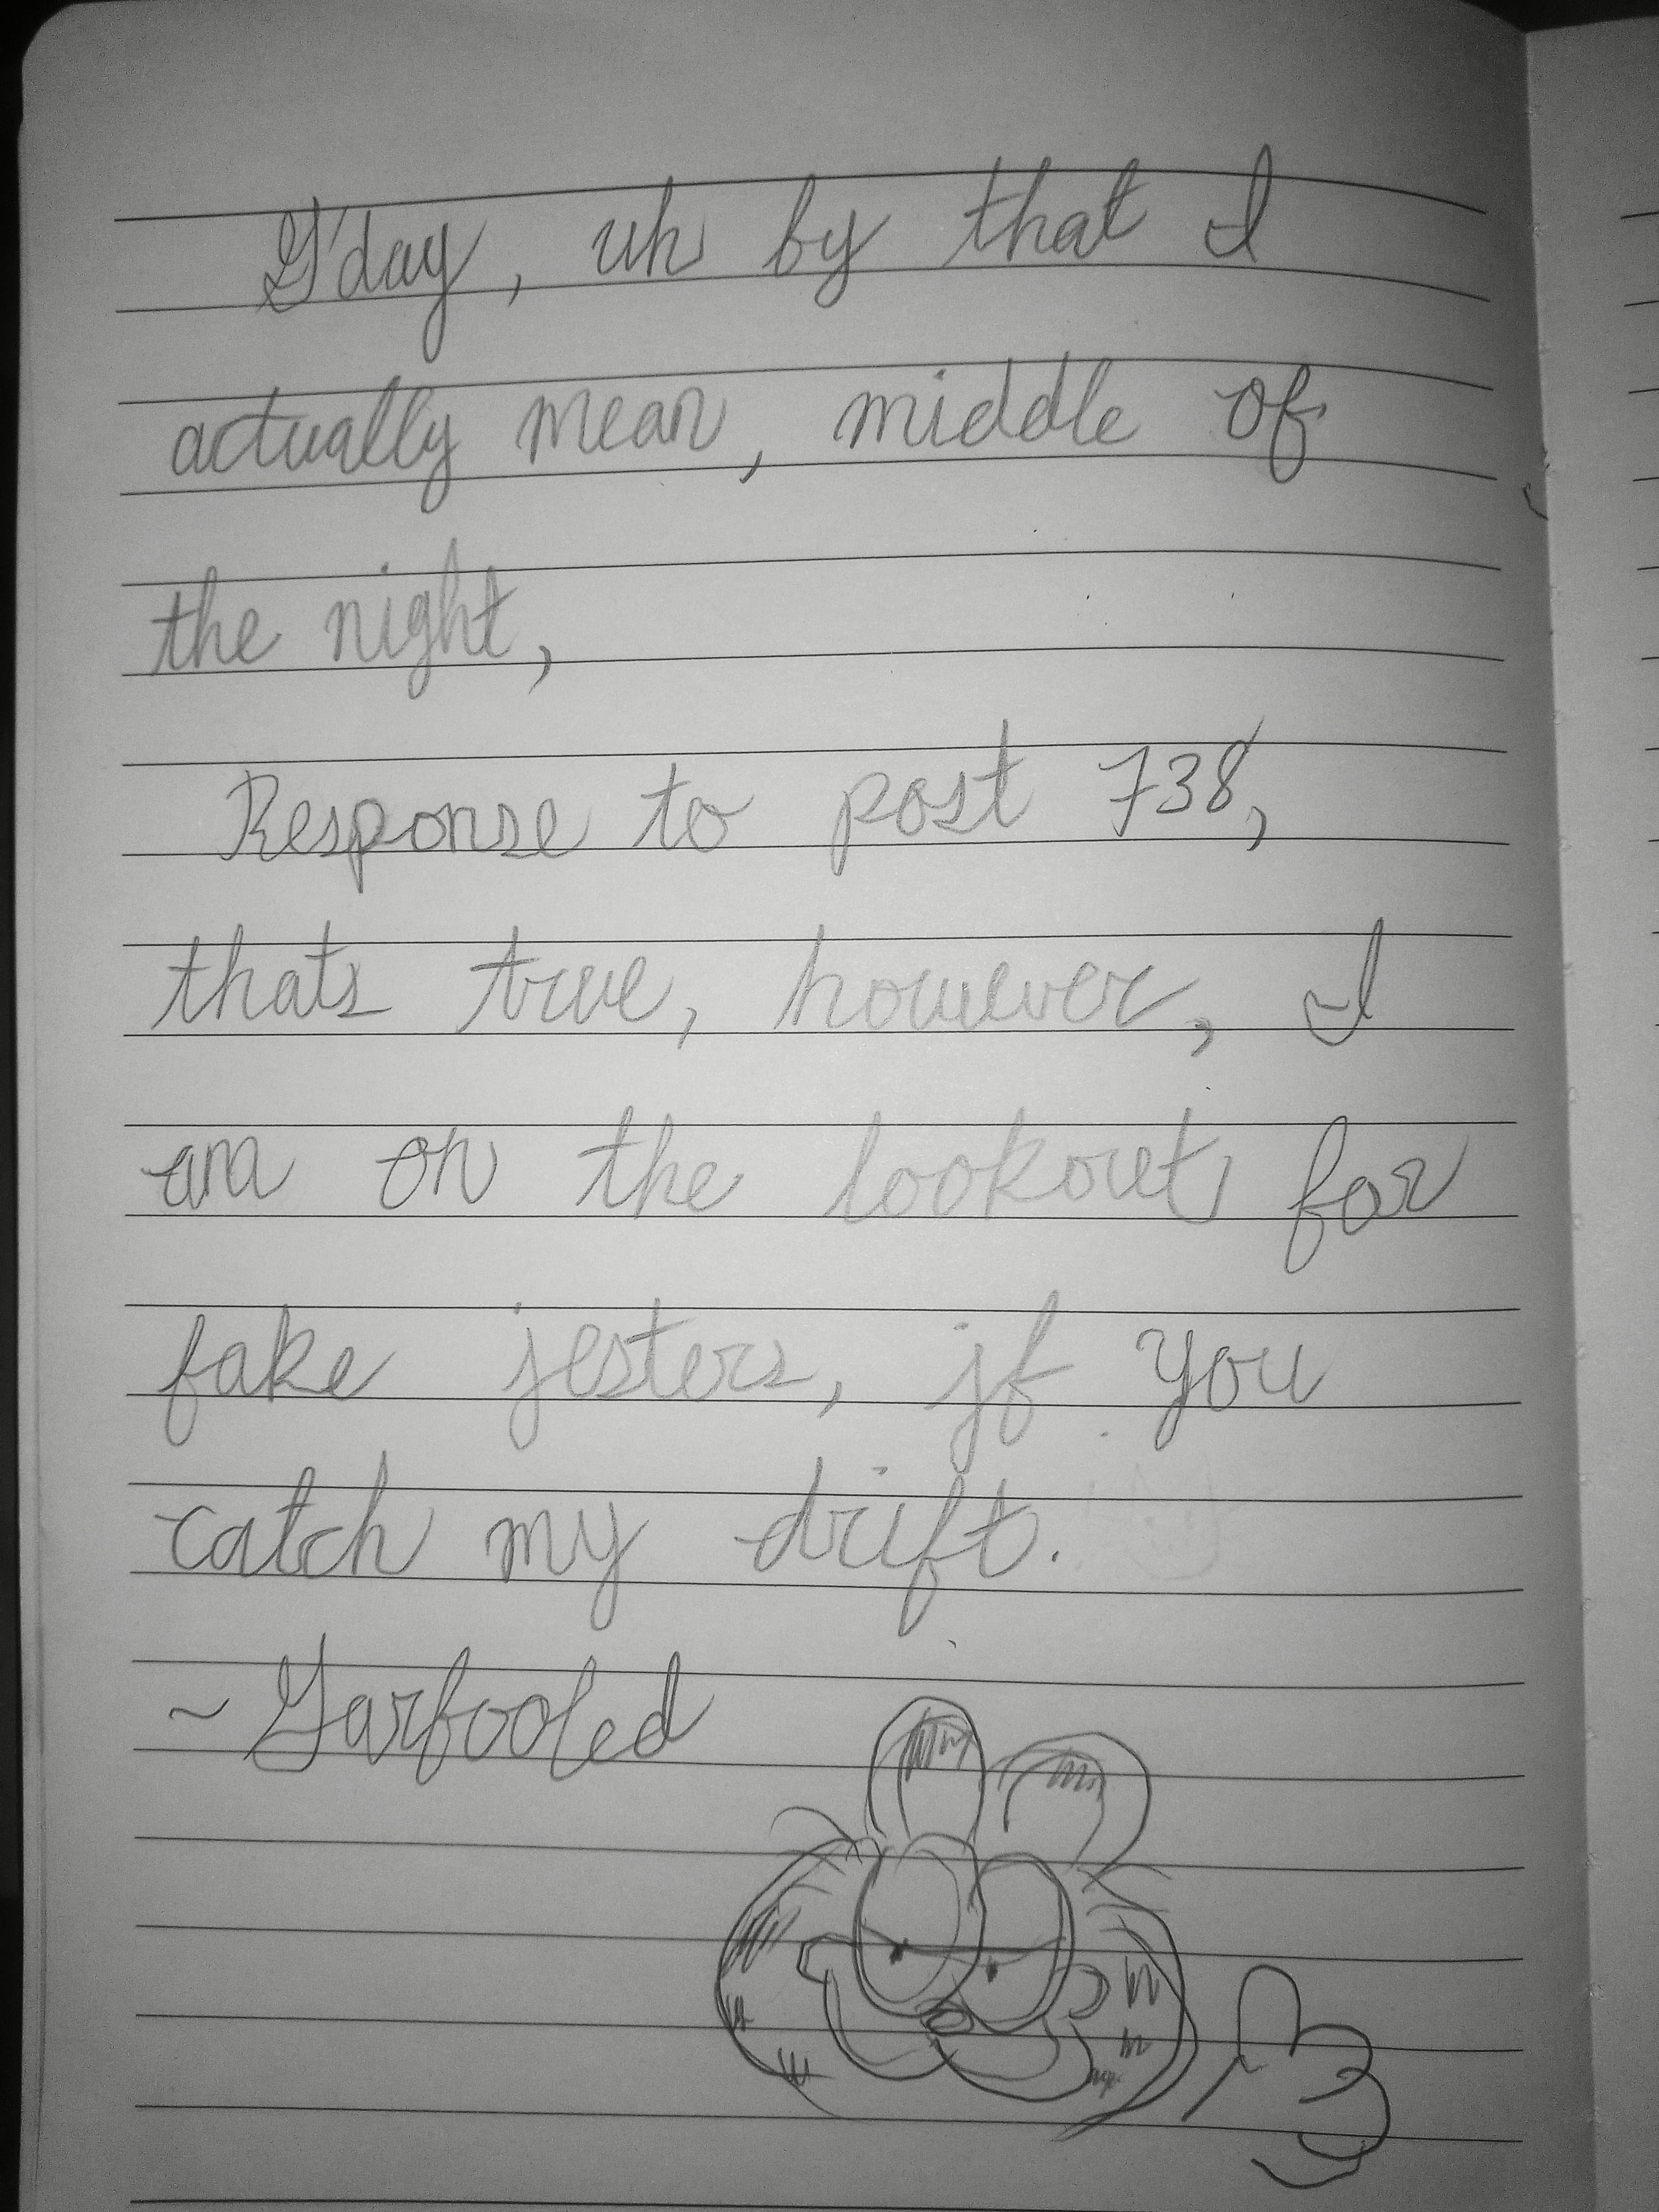 G'day, uh by that I
actually mean, middle of
the night,
Response to post 738,
thats true, however, I
am on the lookout for
fake jesters, if you
catch my drift.
~ Garfooled